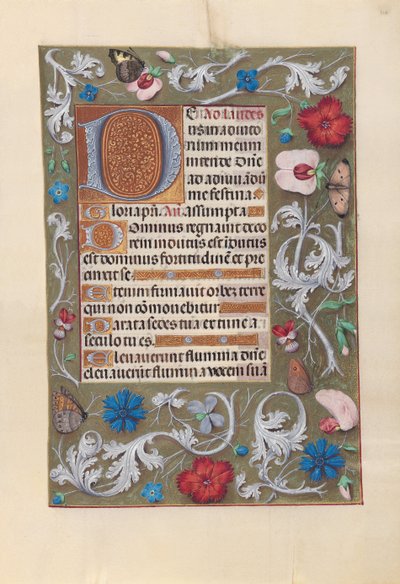 DE Ad laudes
us in adiuto
rium meum
intende Dn̄e
ad adiuuādū
me festina
Gloria pr̄i. An̄. assumpta
Dominus regnauit deco
rem indutus est indutus
est dominus fortitudinē et pre
cinxit se.
Etenim firmauit orbez terre
qui non cōmouebitur
Parata sedes tua ex tunc a
seculo tu es.
Eleuauerunt flumina dn̄e
eleuauerūt flumina uocem suā